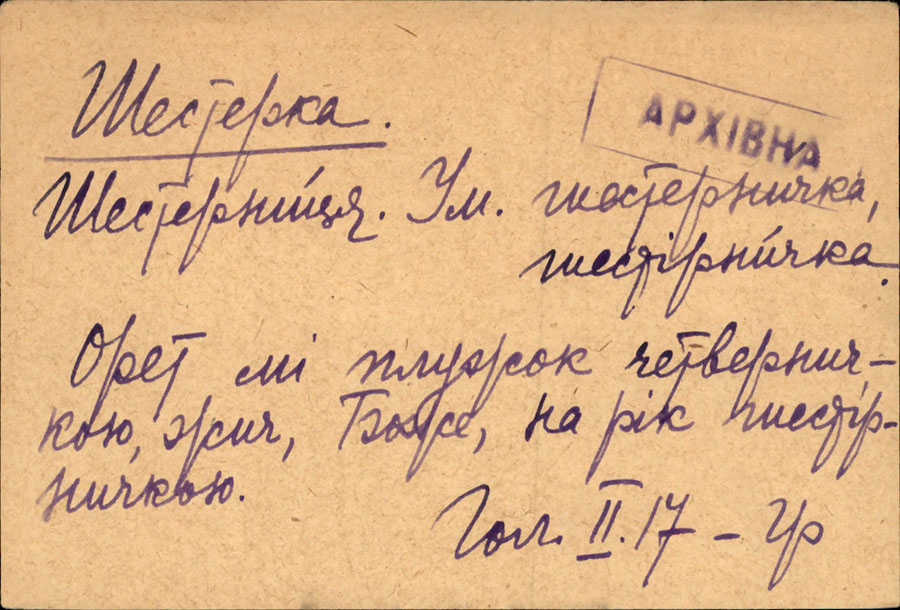 Шестерка.
АРХІВНА
Шестерни́ця. Ум. шестерничка,
шестірни́чка.
Орет мі плужок четвернич-
кою, зич, Боже, на рік шестір-
ничкою.
Гол. II. 17 – Гр